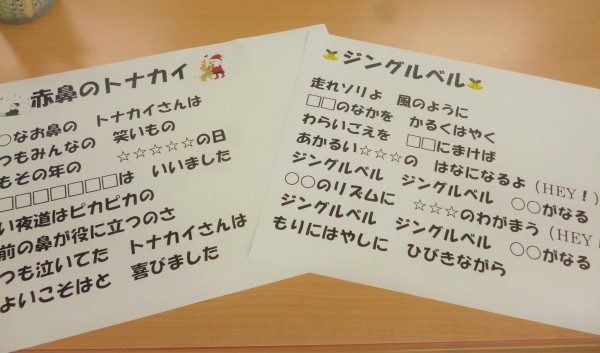 赤鼻のトナカイ
○なお鼻の トナカイさんは
つもみんなの 笑いもの
もその年の ☆☆☆☆☆の日
□□□□□□□は いいました
い夜道はピカピカの
前の鼻が役に立つのさ
つも泣いてた トナカイさんは
よいこそはと 喜びました
ジングルベル
走れソリよ 風のように
□□のなかを かるくはやく
わらいごえを □□にまけば
あかるい☆☆☆の はなになるよ（HEY！）
ジングルベル ジングルベル ○○がなる
○○のリズムに ☆☆☆のわがまう（HEY！
ジングルベル ジングルベル ○○がなる
もりにはやしに ひびきながら